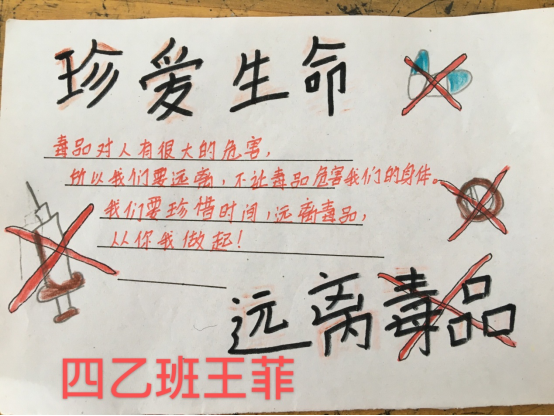 珍爱生命
毒品对人有很大的危害，
所以我们要远离，不让毒品危害我们的身体。
我们要珍惜时间，远离毒品，
从你我做起！
远离毒品
四乙班王菲